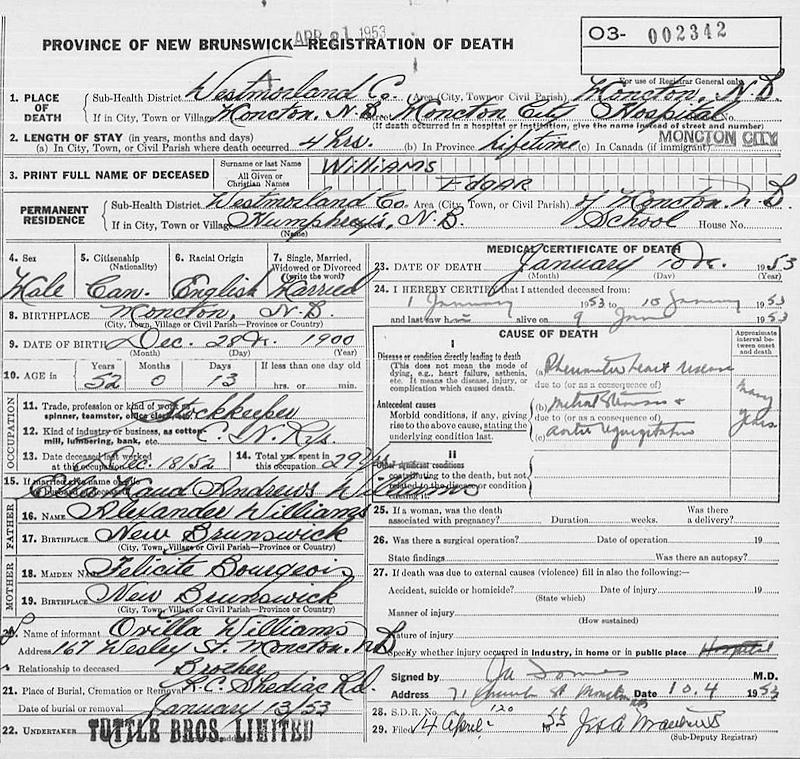 APR 21 1953
PROVINCE OF NEW BRUNSWICK—REGISTRATION OF DEATH
O3- 002342
For use of Registrar General only
1. PLACE OF DEATH
Sub-Health District Westmorland Co. Area (City, Town or Civil Parish) Moncton, N.B.
If in City, Town or Village Moncton, N.B. Street Moncton City Hospital No.
(If death occurred in a hospital or institution, give the name instead of street and number)
2. LENGTH OF STAY (in years, months and days)
(a) In City, Town, or Civil Parish where death occurred 4 hrs. (b) In Province Lifetime (c) In Canada (if immigrant)
MONCTON CITY
3. PRINT FULL NAME OF DECEASED
Surname or last Name WILLIAMS
All Given or Christian Names EDGAR
PERMANENT RESIDENCE
Sub-Health District Westmorland Co. Area (City, Town or Civil Parish) of Moncton N.B.
If in City, Town or Village Humphreys, N.B. School House No.
(Name)
4. Sex Male
5. Citizenship (Nationality) Can.
6. Racial Origin English
7. Single, Married, Widowed or Divorced (write the word) Married
8. BIRTHPLACE Moncton, N.B.
(City, Town, Village or Civil Parish—Province or Country)
9. DATE OF BIRTH Dec. 28th. 1900
(Month) (Day) (Year)
10. AGE in Years 52 Months 0 Days 13 If less than one day old hrs. or min.
OCCUPATION
11. Trade, profession or kind of work as spinner, teamster, office clerk, etc. Stockkeeper
12. Kind of industry or business, as cotton-mill, lumbering, bank, etc. C. N. Rys.
13. Date deceased last worked at this occupation Dec. 18/52
14. Total yrs. spent in this occupation 29 yrs
15. If married give name of Maud Andrews Williams
FATHER
16. NAME Alexander Williams
17. BIRTHPLACE New Brunswick
(City, Town, Village or Civil Parish—Province or Country)
MOTHER
18. MAIDEN NAME Felicite Bourgeois
19. BIRTHPLACE New Brunswick
(City, Town, Village or Civil Parish—Province or Country)
Name of informant Orilla Williams
Address 167 Wesley St. Moncton. N.B.
Relationship to deceased Brother
21. Place of Burial, Cremation or Removal R.C. Shediac Rd.
Date of burial or removal January 13/53
22. UNDERTAKER TUTTLE BROS. LIMITED
MEDICAL CERTIFICATE OF DEATH
23. DATE OF DEATH January 10th. 1953
(Month) (Day) (Year)
24. I HEREBY CERTIFY that I attended deceased from:
1 January 1953 to 10 January 1953
and last saw him alive on 9 Jan 1953
CAUSE OF DEATH
Approximate interval between onset and death
I
Disease or condition directly leading to death
(This does not mean the mode of dying, e.g., heart failure, asthenia, etc. It means the disease, injury, or complication which caused death.
(a) Rheumatic heart disease
due to (or as a consequence of)
Antecedent causes
Morbid conditions, if any, giving rise to the above cause, stating the underlying condition last.
(b) Mitral Stenosis &
due to (or as a consequence of)
(c) aortic regurgitation
many years
II
Other significant conditions
contributing to the death, but not related to the disease or condition causing it.
25. If a woman, was the death associated with pregnancy? Duration weeks. Was there a delivery?
26. Was there a surgical operation? Date of operation 19
State findings Was there an autopsy?
27. If death was due to external causes (violence) fill in also the following:—
Accident, suicide or homicide? Date of injury 19
(State which)
Manner of injury
(How sustained)
Nature of injury
Specify whether injury occurred in industry, in home or in public place Hospital
Signed by M.D.
Address 71 St Moncton NB Date 10.4 1953
28. S.D.R. No. 120
29. Filed 14 April 1953
(Sub-Deputy Registrar)